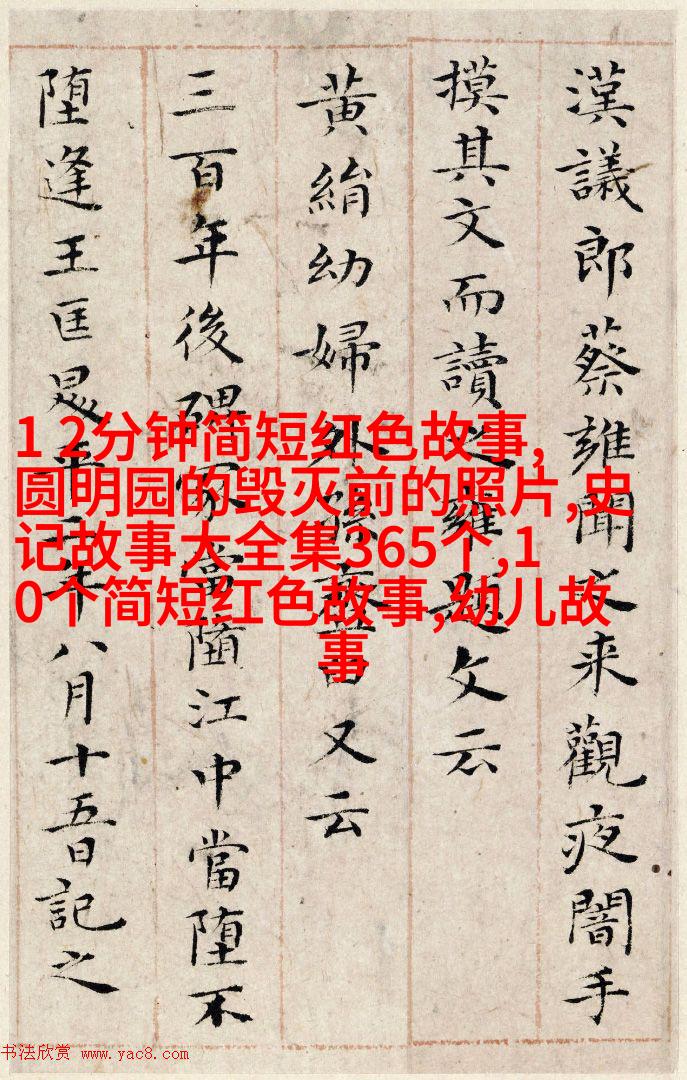 漢議郎蔡雍聞之来觀夜闇手
摸其文而讀之雍題文云
黃絹幼婦外孫臼又云
三百年後碑冢當堕江中當堕不
堕逢王匡平二年八月十五日記之
1 2分钟简短红色故事,
圆明园的毁灭前的照片,史
记故事大全集365个,1
0个简短红色故事,幼儿故
事
书法欣赏 www.yac8.com